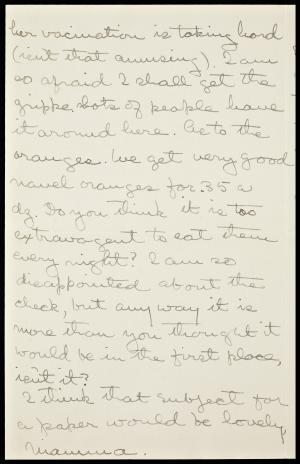 her vaccination is taking hard
(isnt that amusing). I am
so afraid I shall get the
grippe. Lots of people have
it around here. As to the
oranges. Ive get very good
navel oranges for .35 a
dz. Do you think it is too
extravagent to eat them
every night? I am so
disappointed about the
check, but any way it is
more than you thought it
would be in the first place,
isn't it?
I think that subject for
a paper would be lovely
Mamma.